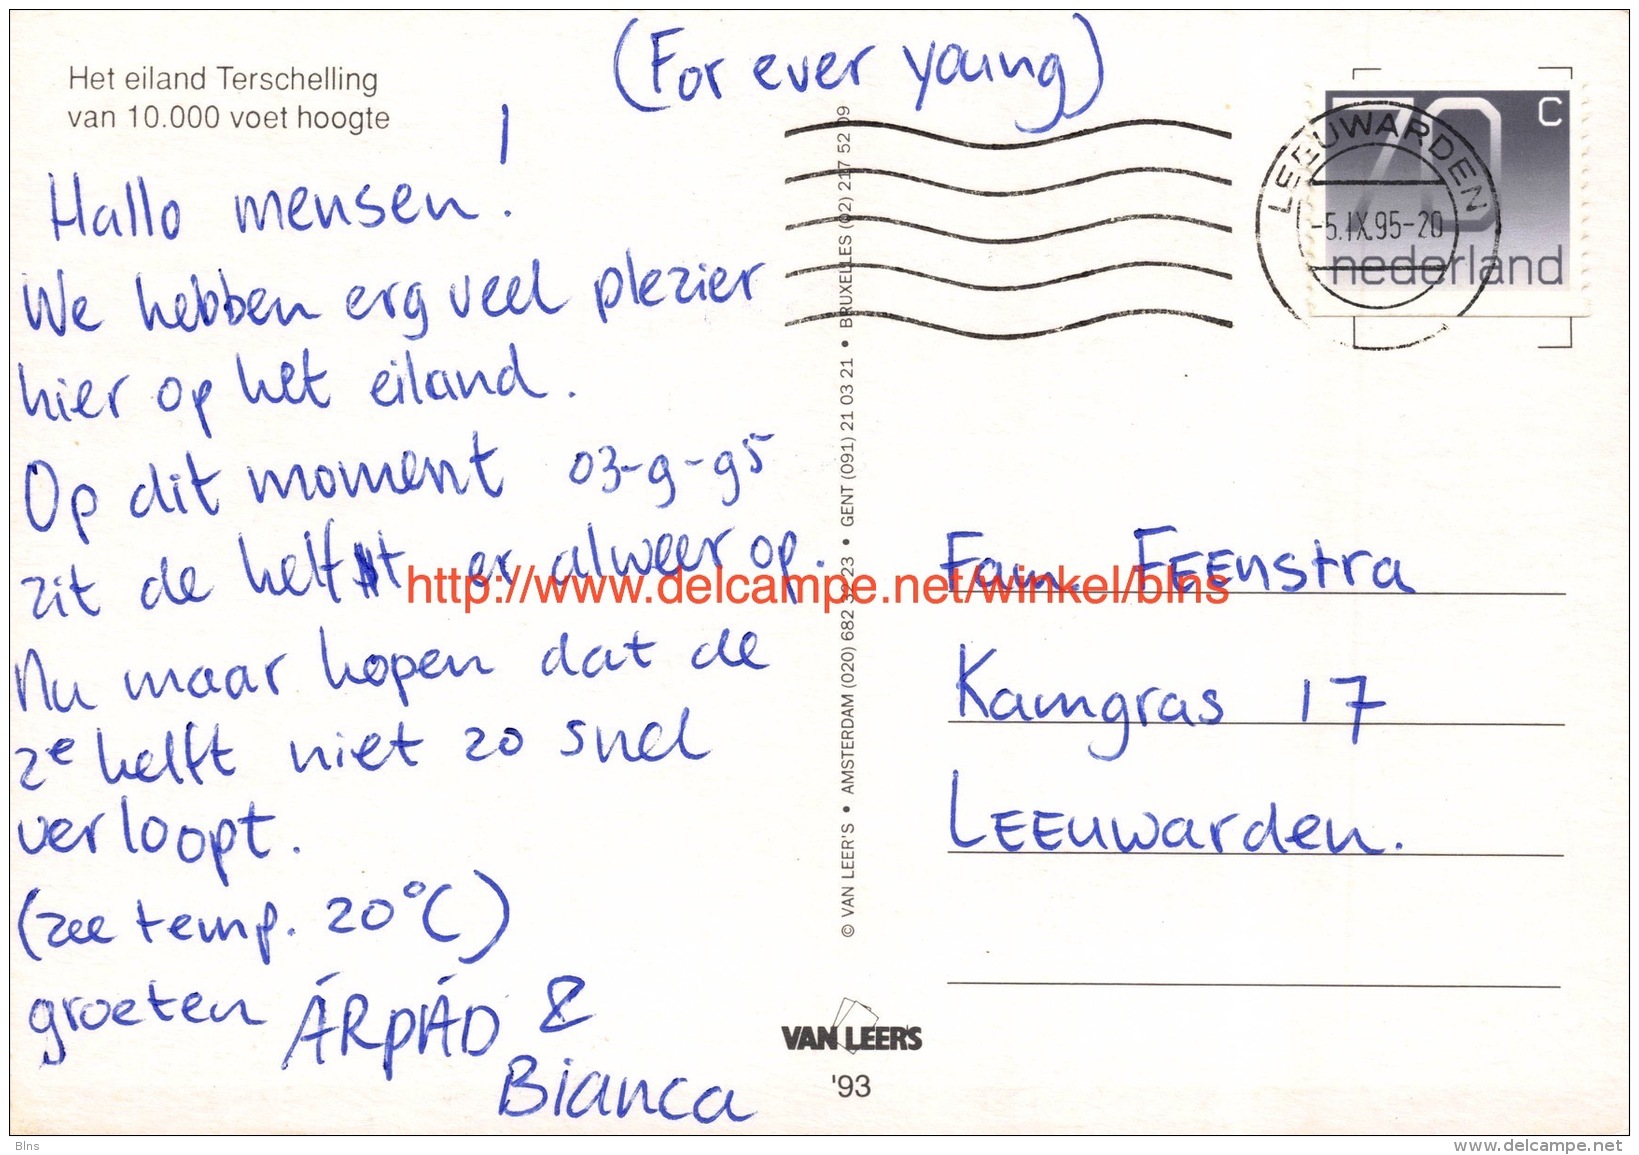 Het eiland Terschelling
van 10.000 voet hoogte
(For ever young)
Hallo mensen!
We hebben erg veel plezier
hier op het eiland.
Op dit moment 03-9-95
zit de helft er alweer op.
Nu maar hopen dat de
2e helft niet zo snel
verloopt.
(zee temp. 20°C)
groeten ÁRpÁD &
Bianca
© VAN LEER'S • AMSTERDAM (020) 682 32 23 • GENT (091) 21 03 21 • BRUXELLES (02) 217 52 09
70 C
nederland
LEEUWARDEN
-5.IX.95-20
Fam. FEEnstra
Kamgras 17
LEEuwarden.
VAN LEER'S
'93
http://www.delcampe.net/winkel/blns
Blns
www.delcampe.net